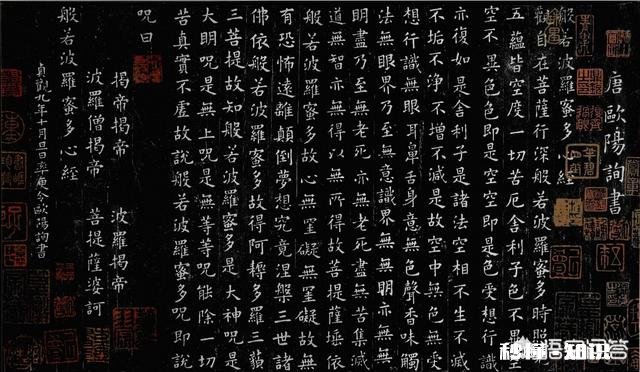 唐歐陽詢書
般若波羅蜜多心經
觀自在菩薩行深般若波羅蜜多時照見
五蘊皆空度一切苦厄舍利子色不異空
空不異色色即是空空即是色受想行識
亦復如是舍利子是諸法空相不生不滅
不垢不淨不增不減是故空中無色無受
想行識無眼耳鼻舌身意無色聲香味觸
法無眼界乃至無意識界無無明亦無無
明盡乃至無老死亦無老死盡無苦集滅
道無智亦無得以無所得故菩提薩埵依
般若波羅蜜多故心無罣礙無罣礙故無
有恐怖遠離顛倒夢想究竟涅槃三世諸
佛依般若波羅蜜多故得阿耨多羅三藐
三菩提故知般若波羅蜜多是大神呪是
大明呪是無上呪是無等等呪能除一切
苦真實不虛故說般若波羅蜜多呪即說
呪曰
揭帝揭帝 波羅揭帝
波羅僧揭帝 菩提薩婆訶
般若波羅蜜多心經
貞觀九年十月旦日率更令歐陽詢書
悟空问答
知识